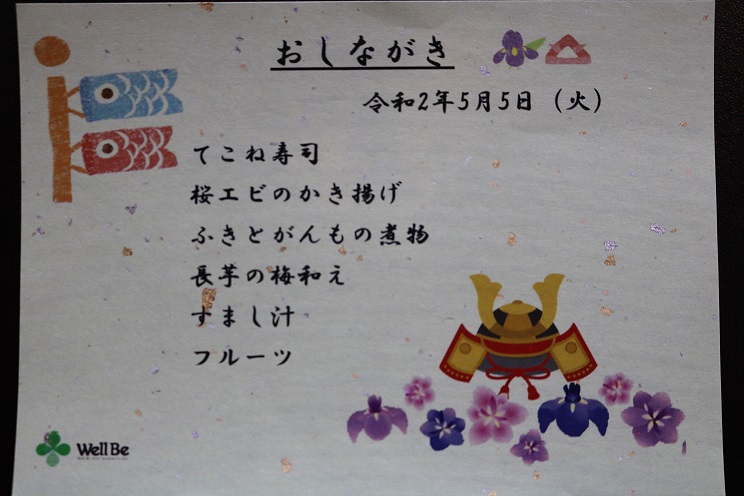 おしながき
令和2年5月5日（火）
てこね寿司
桜エビのかき揚げ
ふきとがんもの煮物
長芋の梅和え
すまし汁
フルーツ
Well Be